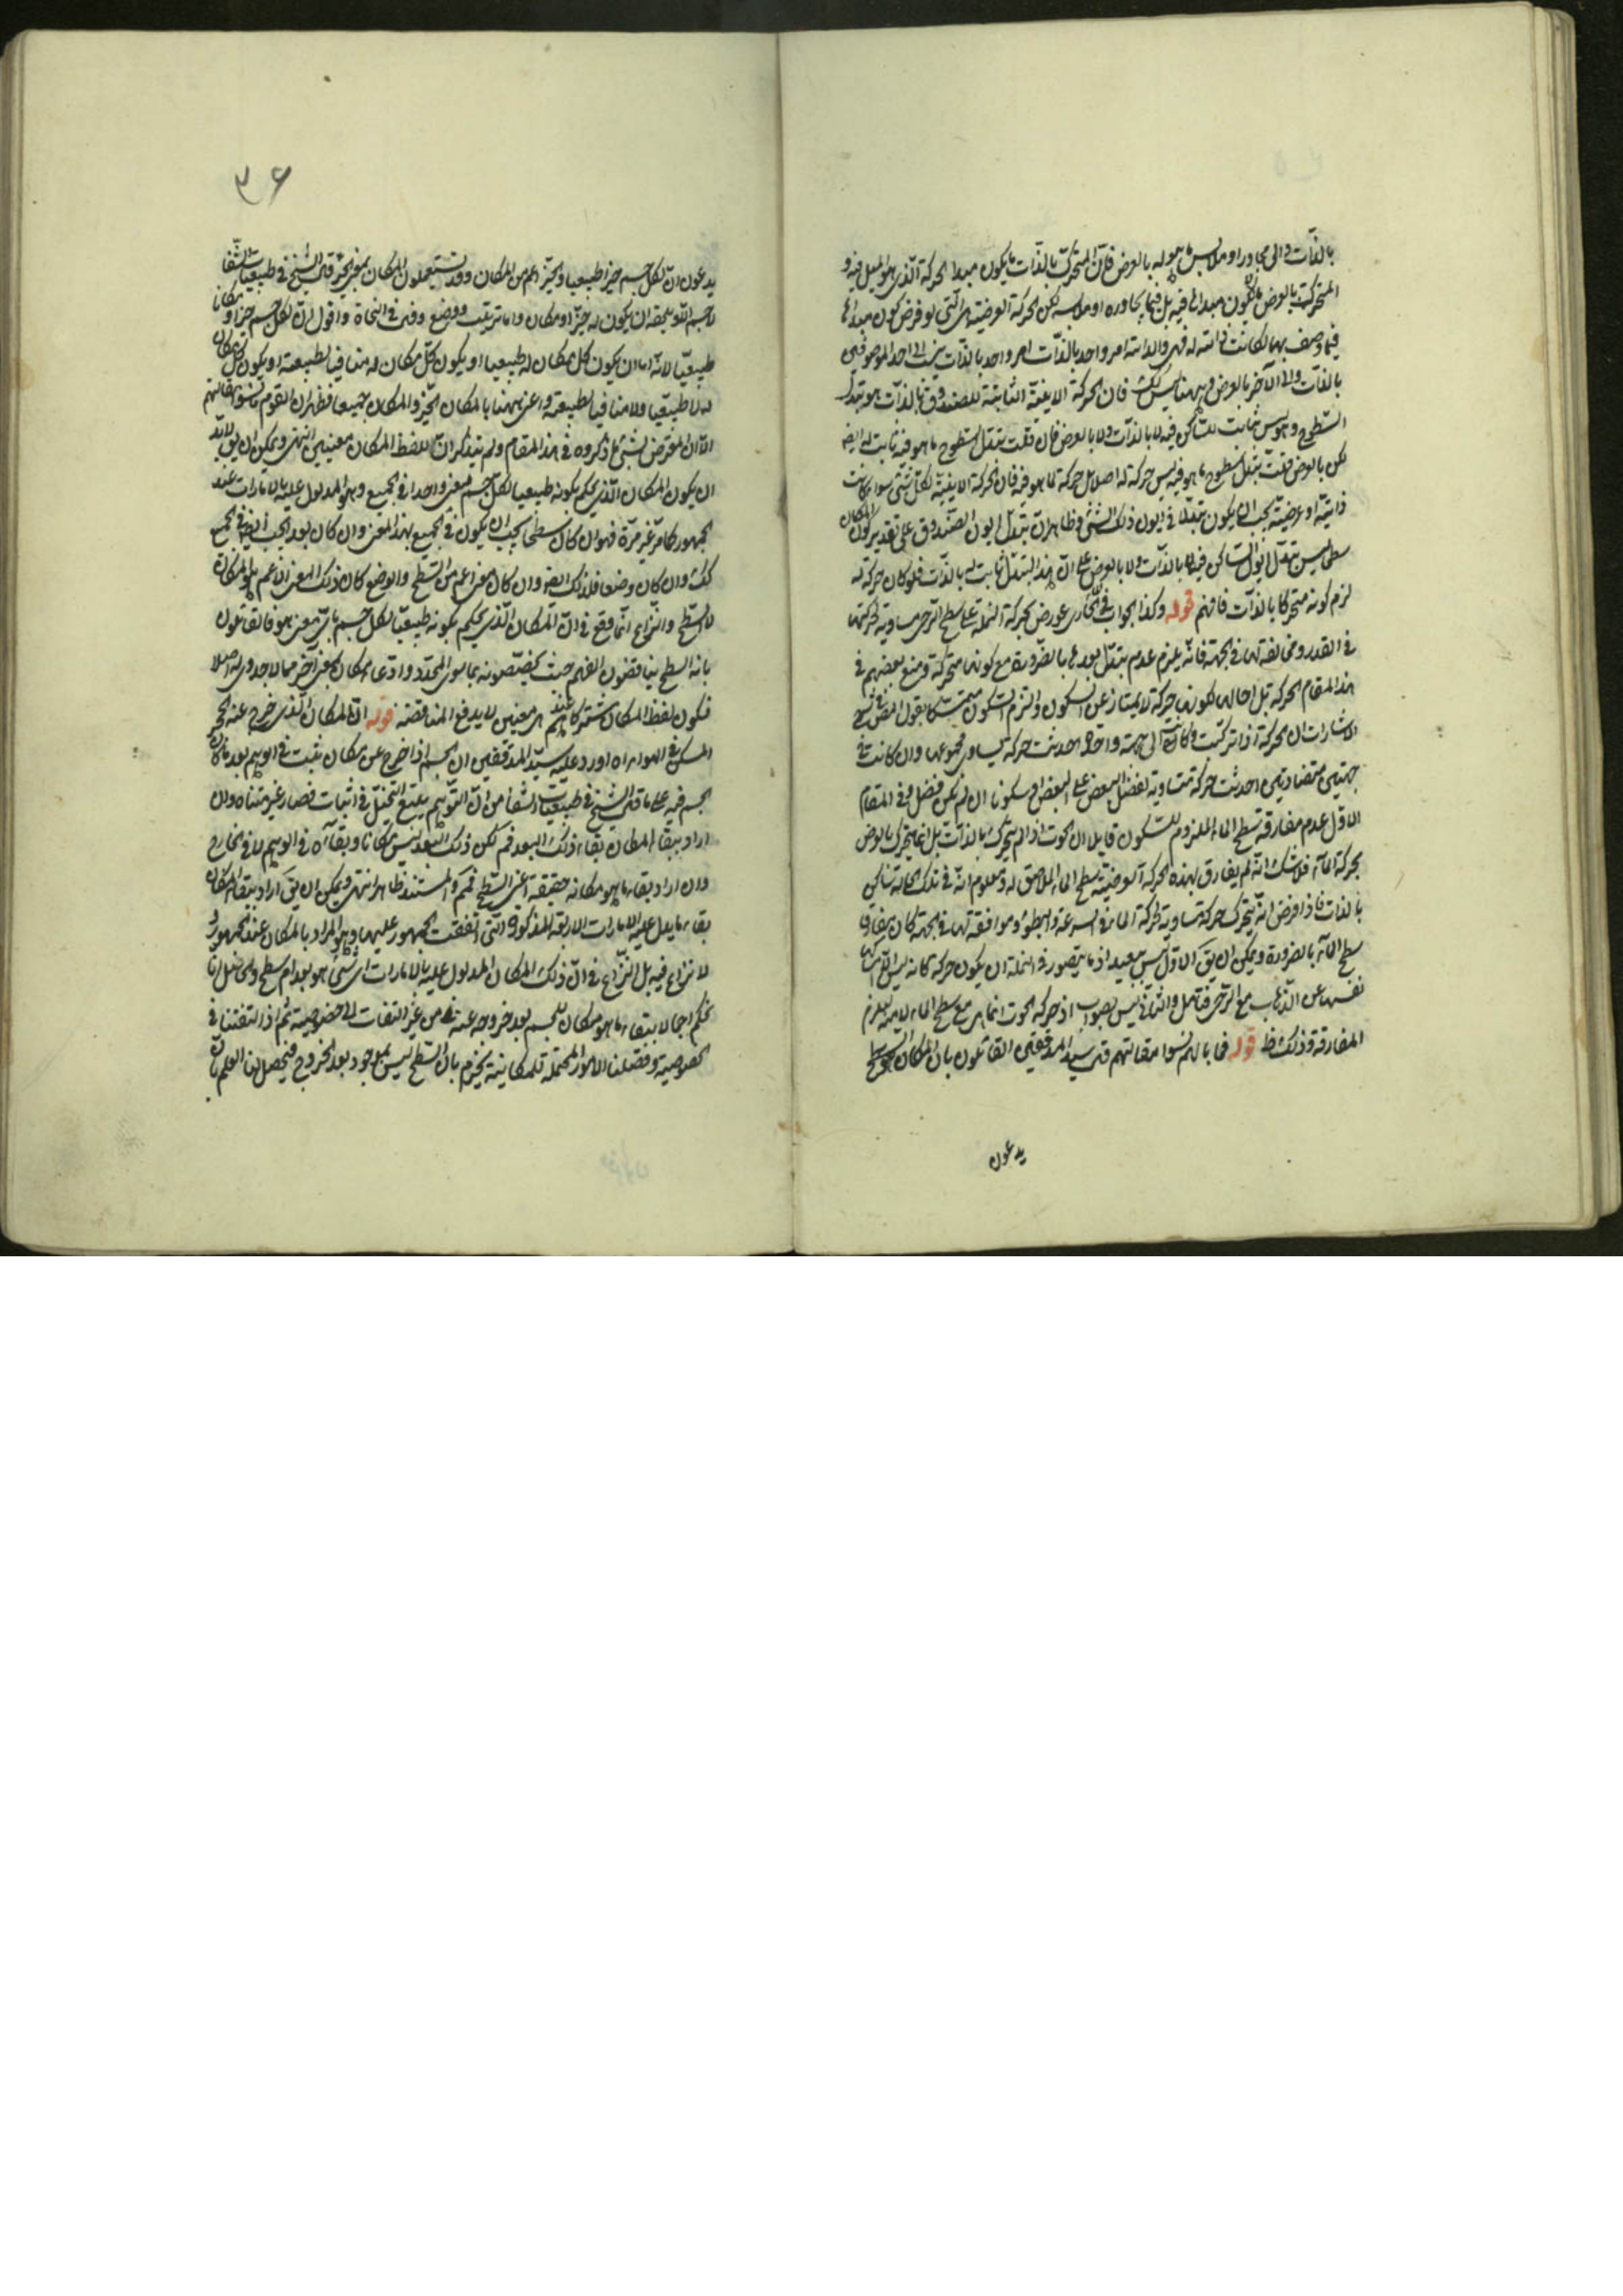 بالذات والى مجاور او ملابس ما هو له بالعرض فان المتحرك بالذات ما يكون مبدا الحركة الذى هو الميل فيه و
المتحرك بالعرض ما لا يكون مبدا لها فيه بل فيما يجاوره او ملابسه لكن الحركة العرضية هى التى لو فرض كون مبدا لها
فيما وصف بها لكانت ذاتية له فهى والذاتية امر واحد بالذات ينسب الى احد الموصوفين
بالذات والى الآخر بالعرض وههنا ليس كك فان الحركة الاينية الثابتة للصندوق بالذات هو تبدل
السطوح وهو ليس ثابت للساكن فيه لا بالذات ولا بالعرض فان قلت تبدل سطوح ما هو فيه ثابت له ايضا
لكن بالعرض قلت تبدل سطوح ما هو فيه ليس حركة له اصلا بل حركة لما هو فيه فان الحركة الاينية لكل شئ سواء كانت
ذاتية او عرضية يجب ان يكون تبدلا فى ايون ذلك الشئ وظاهر ان تبدل ايون الصندوق على تقدير كون المكان
سطحا ليس تبدل ايون الساكن فيه لا بالذات ولا بالعرض على ان هذا التبدل ثابت له بالذات فلو كان حركة له
لزم كونه متحركا بالذات فافهم قوله وكذا الجواب فى عورض بحركة النملة على سطح الرحى مساوية لحركتها
فى القدر ومخالفة لها فى الجهة فانه يلزم عدم تبدل بعدها بالضرورة مع كونها متحركة ومنع بعضهم فى
هذا المقام الحركة بل احالها لكونها حركة لا يمتاز عن السكون والتزم السكون متمسكا بقول
الاشارات ان الحركة اذا تركبت وكانت الى جهة واحدة احدثت حركة يساوى مجموعها وان كانت فى
جهتين متضادتين احدثت حركة متساوية لفضل البعض على البعض او سكونا ان لم يكن فضل فى المقام
الاول عدم مفارقة سطح الماء الملزوم للسكون قايلا ان الحوت اذا لم يتحرك بالذات بل انما يتحرك بالعرض
بحركة الماء فلا شك انه لم يفارق بهذه الحركة العرضية سطح الماء الملاصق له ومعلوم انه فى تلك الحالة ساكن
بالذات فاذا فرض انه يتحرك حركة مساوية لحركة الماء فى السرعة والبطؤ وموافقة لها فى الجهة كان مفارق
سطح الماء بالضرورة ويمكن ان يق الاول ليس ببعيد اذ ما يتصور فى النملة ان يكون حركة كانه
نفسها عن الذهاب مع الرحى فتامل والثانى ليس بصواب اذ حركة الحوت انما هى مع سطح الماء لا يلزم
المفارقة وذلك ظ قوله فما بالهم نسوا مقالتهم قال سيد المدققين القائلون بان المكان السطح
يدعون
٣٦
يدعون ان لكل جسم حيزا طبيعيا والحيز اعم من المكان وقد يستعملون المكان بمعنى الحيز قال الشيخ فى طبيعيات الشفا
لا جسم الا ويلحقه ان يكون له حيز او مكان واما ترتيب ووضع وقال فى النجاة واقول ان لكل جسم حيزا او مكانا
طبيعيا لانه اما ان يكون كل مكان له طبيعيا او يكون كل مكان له منافيا لطبيعته او يكون كل مكان
له لا طبيعيا ولا منافيا لطبيعته واعنى ههنا بالمكان الحيز والمكان جميعا فظهر ان القوم نسوا مقالتهم
الا ان المعترض نسى ما ذكروه فى هذا المقام ولم يتذكر ان للفظ المكان معنيين انتهى ويمكن ان يق لا بد
ان يكون المكان الذى يحكم بكونه طبيعيا لكل جسم معنى واحدا فى الجميع وهو المدلول عليه بالامارات عند
الجمهور كما مر غير مرة فهو ان كان سطحا يجب ان يكون فى الجميع بهذا المعنى وان كان بعدا يجب ايضا فى الجميع
كك وان كان وضعا فلذلك ايضا وان كان معنى اعم من السطح والوضع كان ذلك المعنى الاعم هو المكان
لا السطح والنزاع انما وقع فى ان المكان الذى يحكم بكونه طبيعيا لكل جسم باى معنى هو فالقائلون
بانه السطح يناقضون انفسهم حيث يخصصونه بما سوى المحدد وادعاء مكان بمعنى آخر مما لا جدوى له اصلا
فكون لفظ المكان مشتركا عندهم بين معنيين لا يدفع المناقضة قوله ان المكان الذى خرج عنه الحجر
المسكن فى الهواء اه اورد عليه سيد المدققين ان الجسم اذا خرج عن مكان ثبت فى الوهم بعد ما كان
الجسم فيه على ما قال الشيخ فى طبيعيات الشفا من ان التوهم يتبع التخيل فى اثبات فضاء غير متناه وان
اراد ببقاء المكان بقاء ذلك البعد فم لكن ذلك البعد ليس مكانا وبقاءه فى الوهم لا فى الخارج
وان اراد بقاء ما هو مكانه حقيقة اعنى السطح فمم والمستند ظاهر انتهى ويمكن ان يق اراد ببقاء المكان
بقاء ما يدل عليه الامارات الاربعة المذكورة التى اتفقت الجمهور عليها وهو المراد بالمكان عند الجمهور و
لا نزاع فيه بل النزاع فى ان ذلك المكان المدلول عليه بالامارات اى شئ هو بعد ام سطح والحاصل انا
نحكم اجمالا ببقاء ما هو مكان للجسم بعد خروجه عنه من غير التفات الى خصوصية ثم اذا التفتنا فى
الخصوصية وفصلنا الامور المحتملة للمكانية نجزم بان السطح ليس بموجود بعد الخروج فيحصل لنا العلم بان